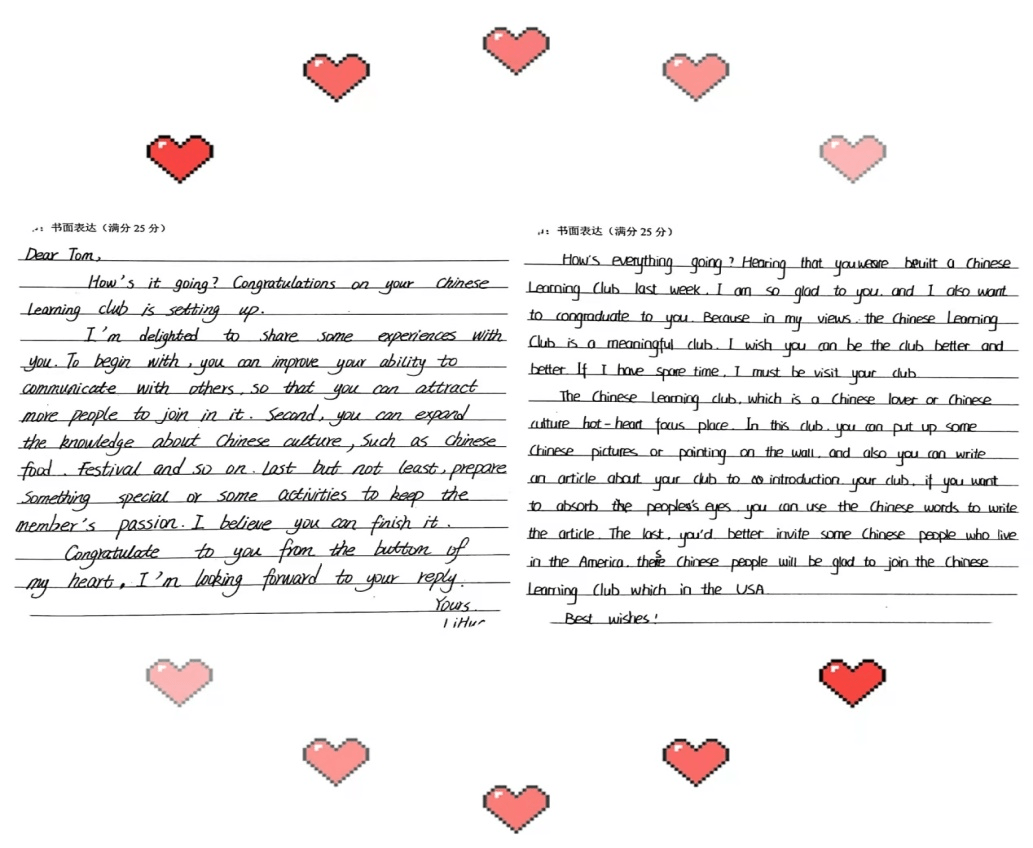 书面表达（满分 25 分）
Dear Tom,
How's it going? Congratulations on your Chinese
Learning club is setting up.
I'm delighted to share some experiences with
you. To begin with, you can improve your ability to
communicate with others, so that you can attract
more people to join in it. Second, you can expand
the knowledge about Chinese culture, Such as Chinese
food. Festival and so on. Last but not least, prepare
something special or some activities to keep the
member's passion. I believe you can finish it.
Congratulate to you from the buttom of
my heart. I'm looking forward to your reply.
Yours
书面表达（满分 25 分）
How's everything going? Hearing that you built a Chinese
Learning Club last week. I am so glad to you. and I also want
to congraduate to you. Because in my views. the Chinese Learning
Club is a meaningful club. I wish you can be the club better and
better. If I have spare time. I must be visit your club
The Chinese Learning club, which is a Chinese lover or Chinese
culture hot-heart focus place. In this club, you can put up some
Chinese pictures or painting on the wall. and also you can write
an article about your club to introduction your club. if you want
to absorb the people's eyes. you can use the Chinese words to write
the article. The last, you'd better invite some Chinese people who live
in the America. these Chinese people will be glad to join the Chinese
Learning Club which in the USA
Best wishes!